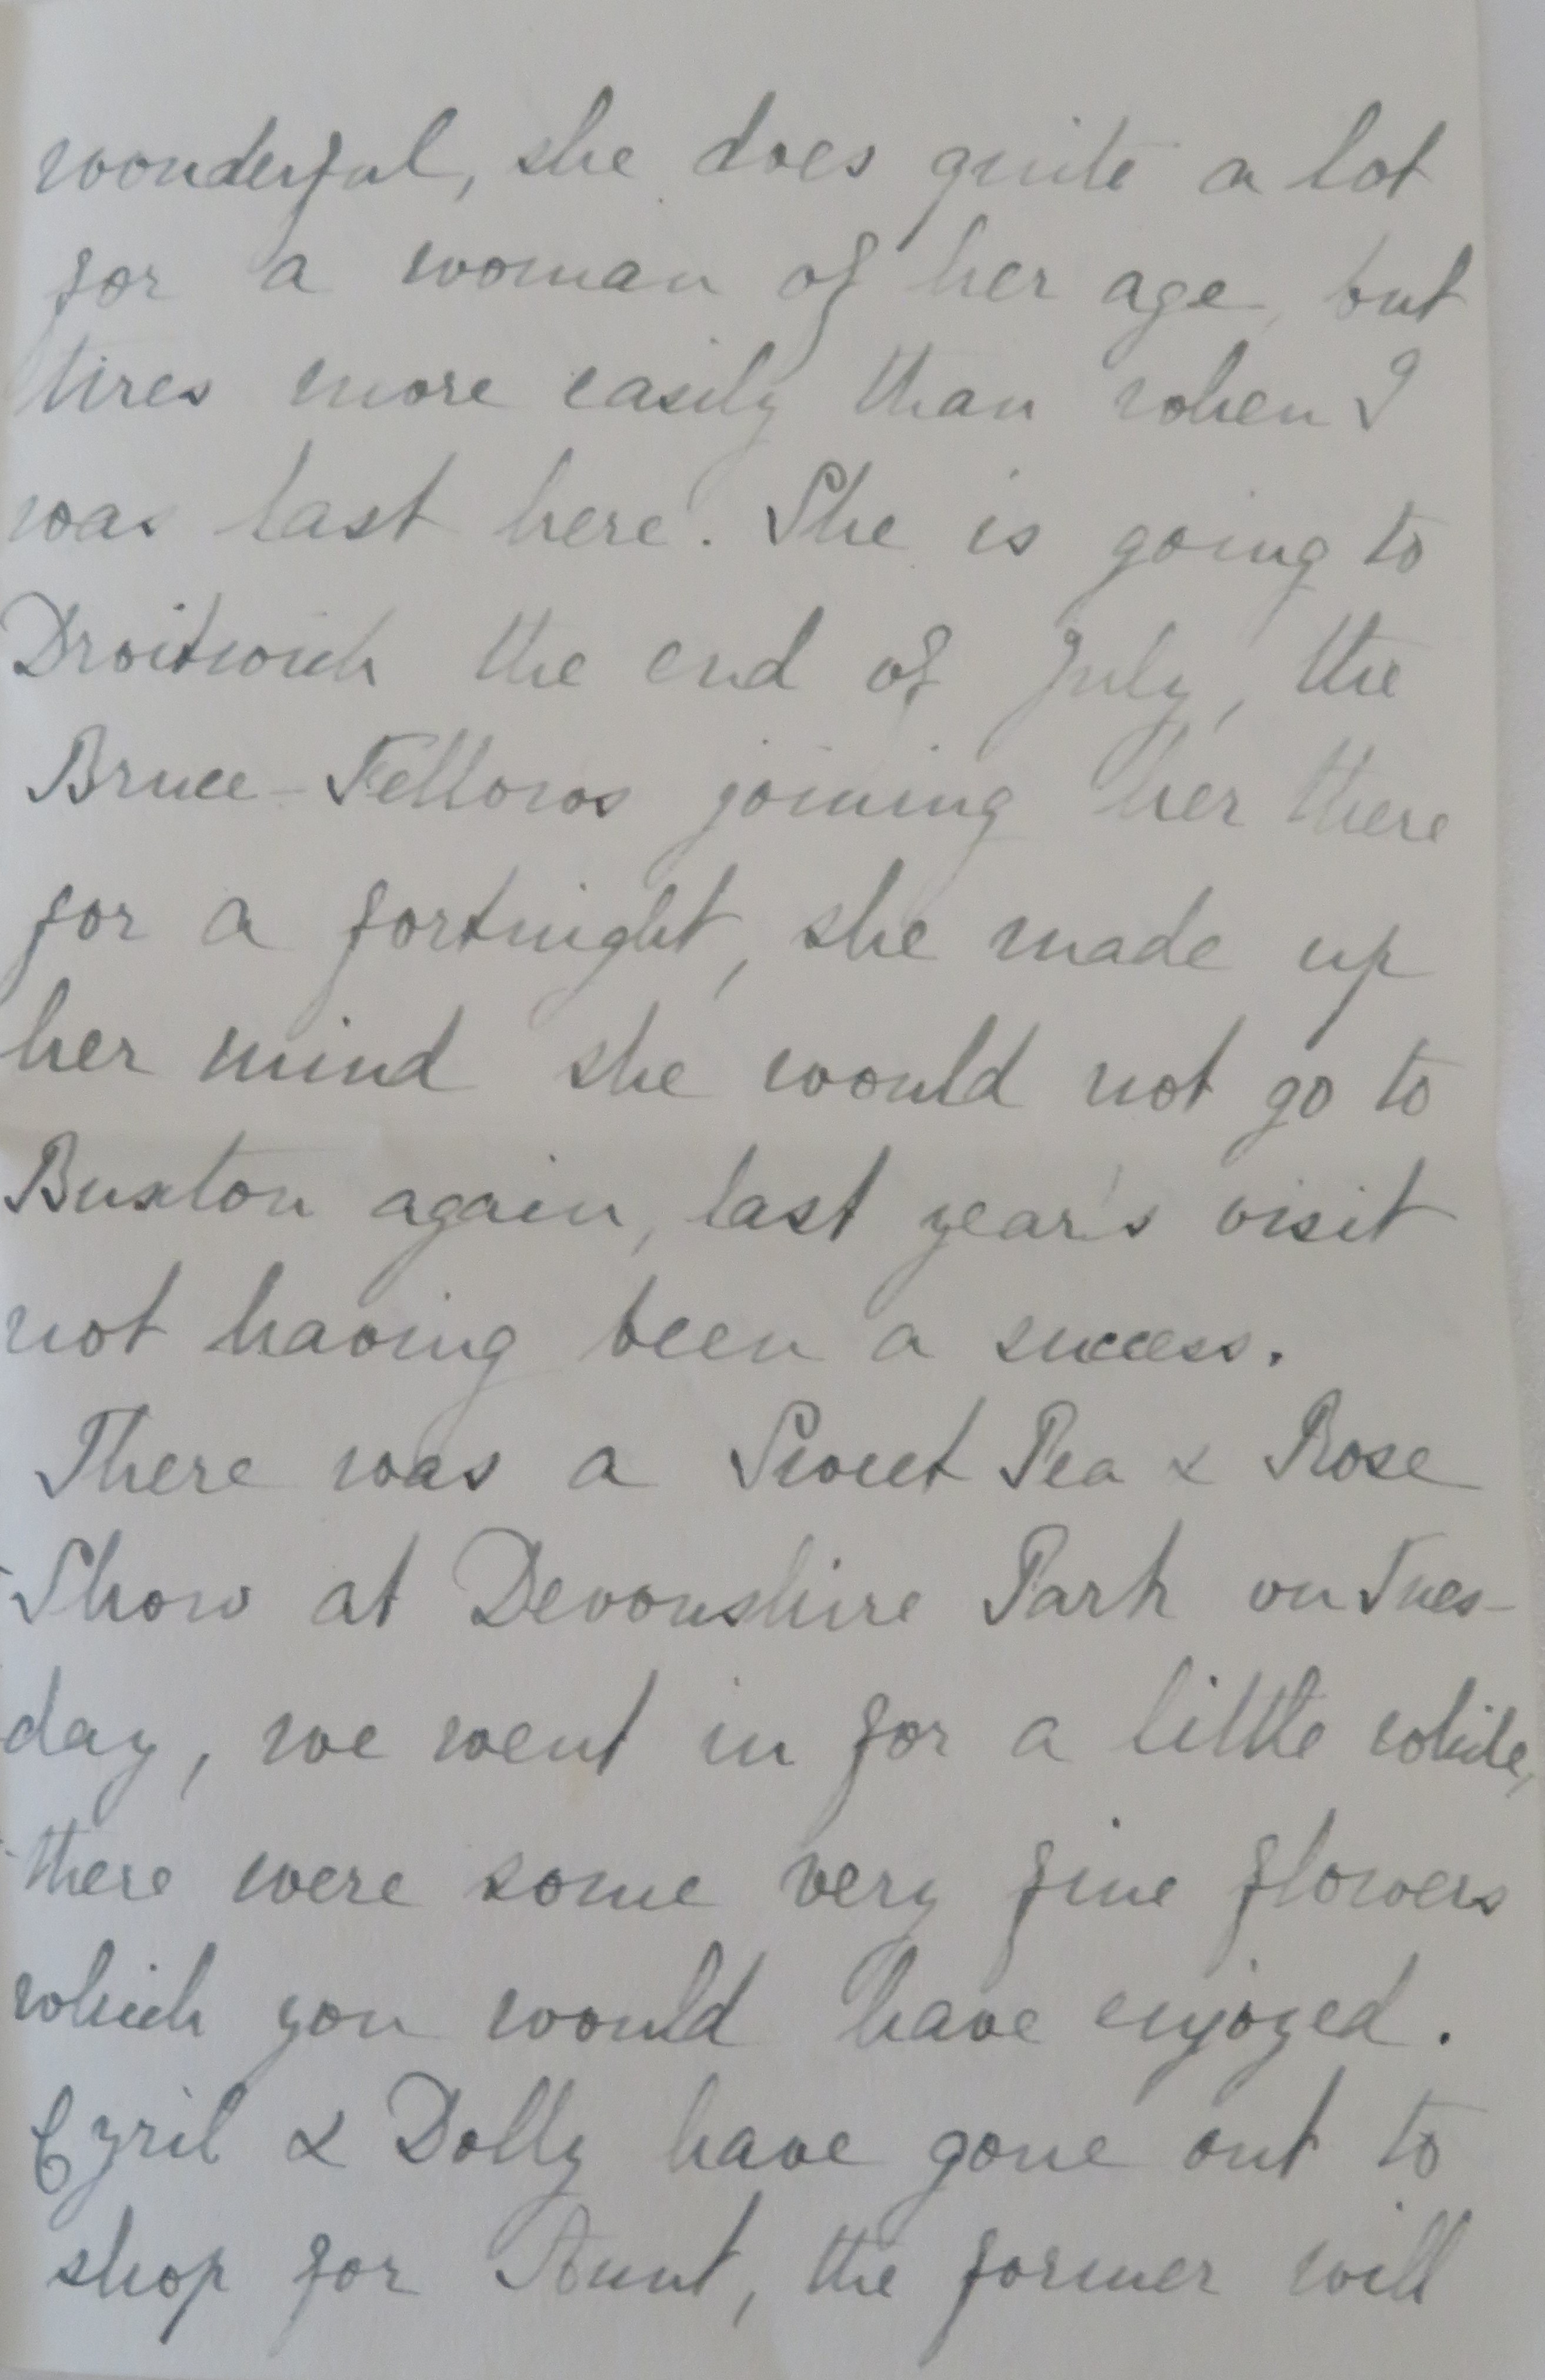 wonderful, she does quite a lot
for a woman of her age, but
tires more easily than when I
was last here. She is going to
Droitwich the end of July, the
Bruce-Fellows joining her there
for a fortnight, she made up
her mind she would not go to
Buxton again, last year's visit
not having been a success.
There was a Sweet Pea & Rose
Show at Devonshire Park on Tues-
day, we went in for a little while,
there were some very fine flowers
which you would have enjoyed.
Cyril & Dolly have gone out to
shop for Aunt, the former will